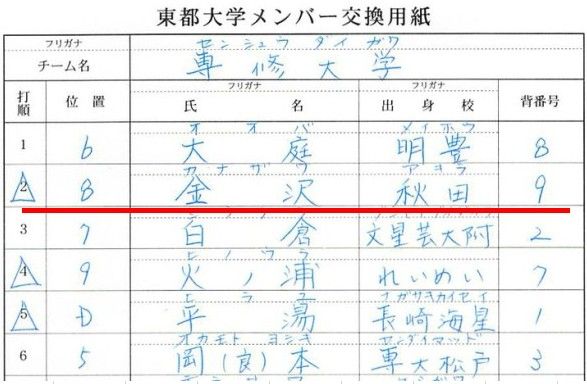 東都大学メンバー交換用紙
フリガナ センシュウ ダイ ガク
チーム名 専修大学
打順 位置 フリガナ 氏名 フリガナ 出身校 背番号
オオバ メイホウ
1 6 大庭 明豊 8
カナザワ アキタ
2 8 金沢 秋田 9
3 7 白倉 文星芸大附 2
ヒノウラ
4 9 火ノ浦 れいめい 7
ヒラユ ナガサキカイセイ
5 D 平湯 長崎海星 1
オカモト ヨシキ センダイマツド
6 5 岡(良)本 専大松戸 3